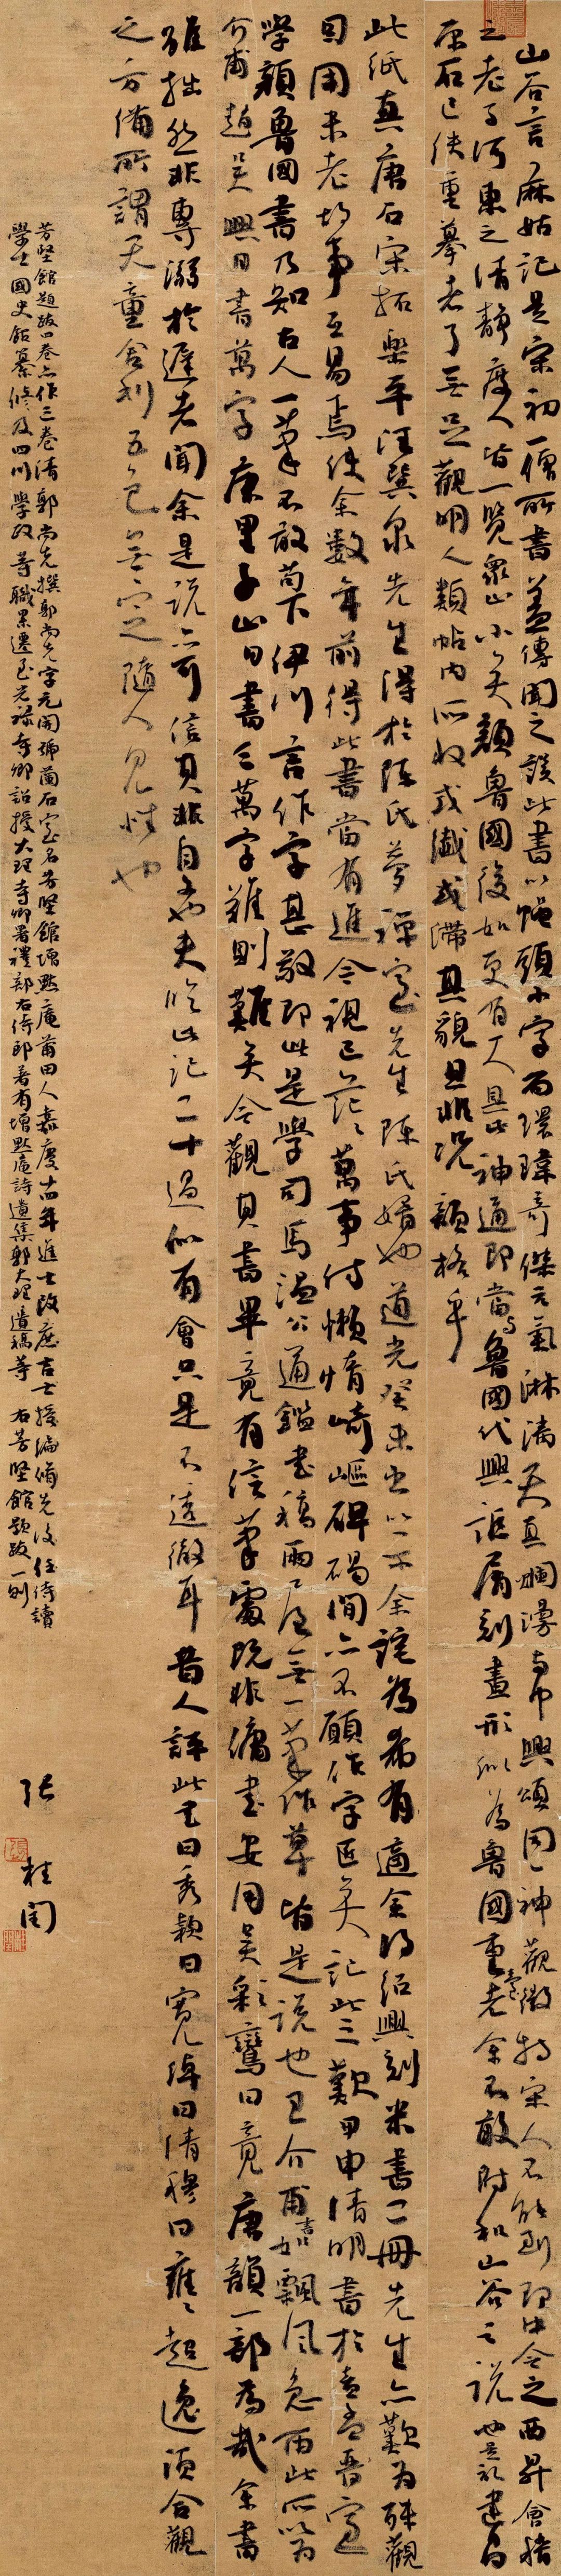 山谷言麻姑記是宋初一僧所書蓋傳聞之誤此書以蠅頭小字而環瑋奇傑元氣淋漓天真爛漫與中興頌同一神觀微特宋人不能到即中令之西昇會稽
之老子河東之清靜度人皆一覽眾山小矣顏魯國後如更有人具此神通即當與魯國代興詎屑刻畫形似為魯國重臺老余不敢附和山谷之說也是記建昌
原石已佚重摹者了無足觀明人類帖內所收或纖或滯具貌且非況韻格乎
此紙真唐石宋拓樂平汪巽泉先生得於陳氏夢禪室先生陳氏婿也道光癸未出以示余詫為希有適余得紹興刻米書二冊先生亦歎為殊觀
因用東老故事互易焉使余數年前得此書當有進今視已茫茫萬事付懶惰崎嶇碑碣間亦不願作字匠矣記此三歎甲申清明書於
學顏魯國書乃知古人一筆不敢苟下伊川言作字甚敬即此是學司馬溫公通鑑書稿兩屋無一筆作草皆是說也王介甫書如飄風急雨此所以為
介甫趙吳興日書萬字康里子山日書三萬字難則難矣今觀其書畢竟有信筆處既非傭書安用吳彩鸞日竟唐韻一部為哉余書
雖拙然非專溺於遲者聞余是說亦可信其非自文也夫臨此記二十過似有會只是不透徹耳昔人評此書曰秀穎曰寬綽曰清穆曰雍雍超逸須合觀
之方備所謂天童舍利五色無定隨人見性也
芳堅館題跋四卷亦作三卷清郭尚先撰郭尚先字元開號蘭石室名芳堅館增默庵莆田人嘉慶十四年進士改庶吉士授編修先後任侍讀
學士國史館纂修及四川學政等職累遷至光祿寺卿詔授大理寺卿署禮部右侍郎著有增默庵詩遺集郭大理遺稿等 右芳堅館題跋一則
張桂閏